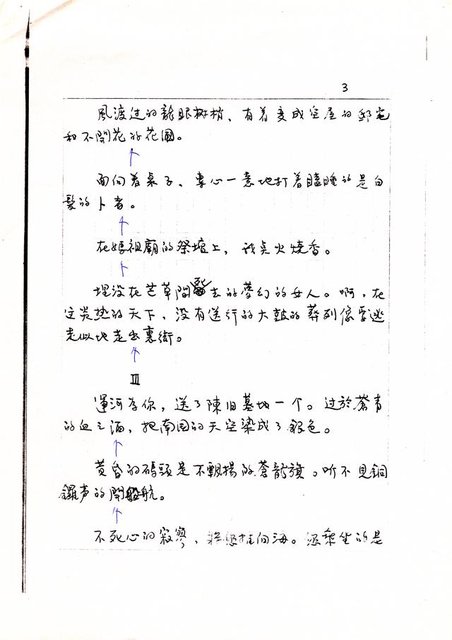 3
風渡过的龍眼树梢、有着变成空屋的邸宅
和不開花的花園。
面向着桌子、専心一意地打着瞌睡的是白
髮的卜者。
在媽祖廟的祭壇上，我点火燒香。
埋没在芒草間 去的夢幻的女人。啊，在
这炎热的天下，没有送行的大鼓的葬列像要逃
走似地走出裏街。
III
運河 你，送了陳旧墓地一个。过於蒼青
的血之海，把南国的天空染成了銀色。
黄昏的碼頭是不飄揚的蒼龍旗。听不見銅
鑼声的開船航。
不死心的寂寥， 向海。 的是